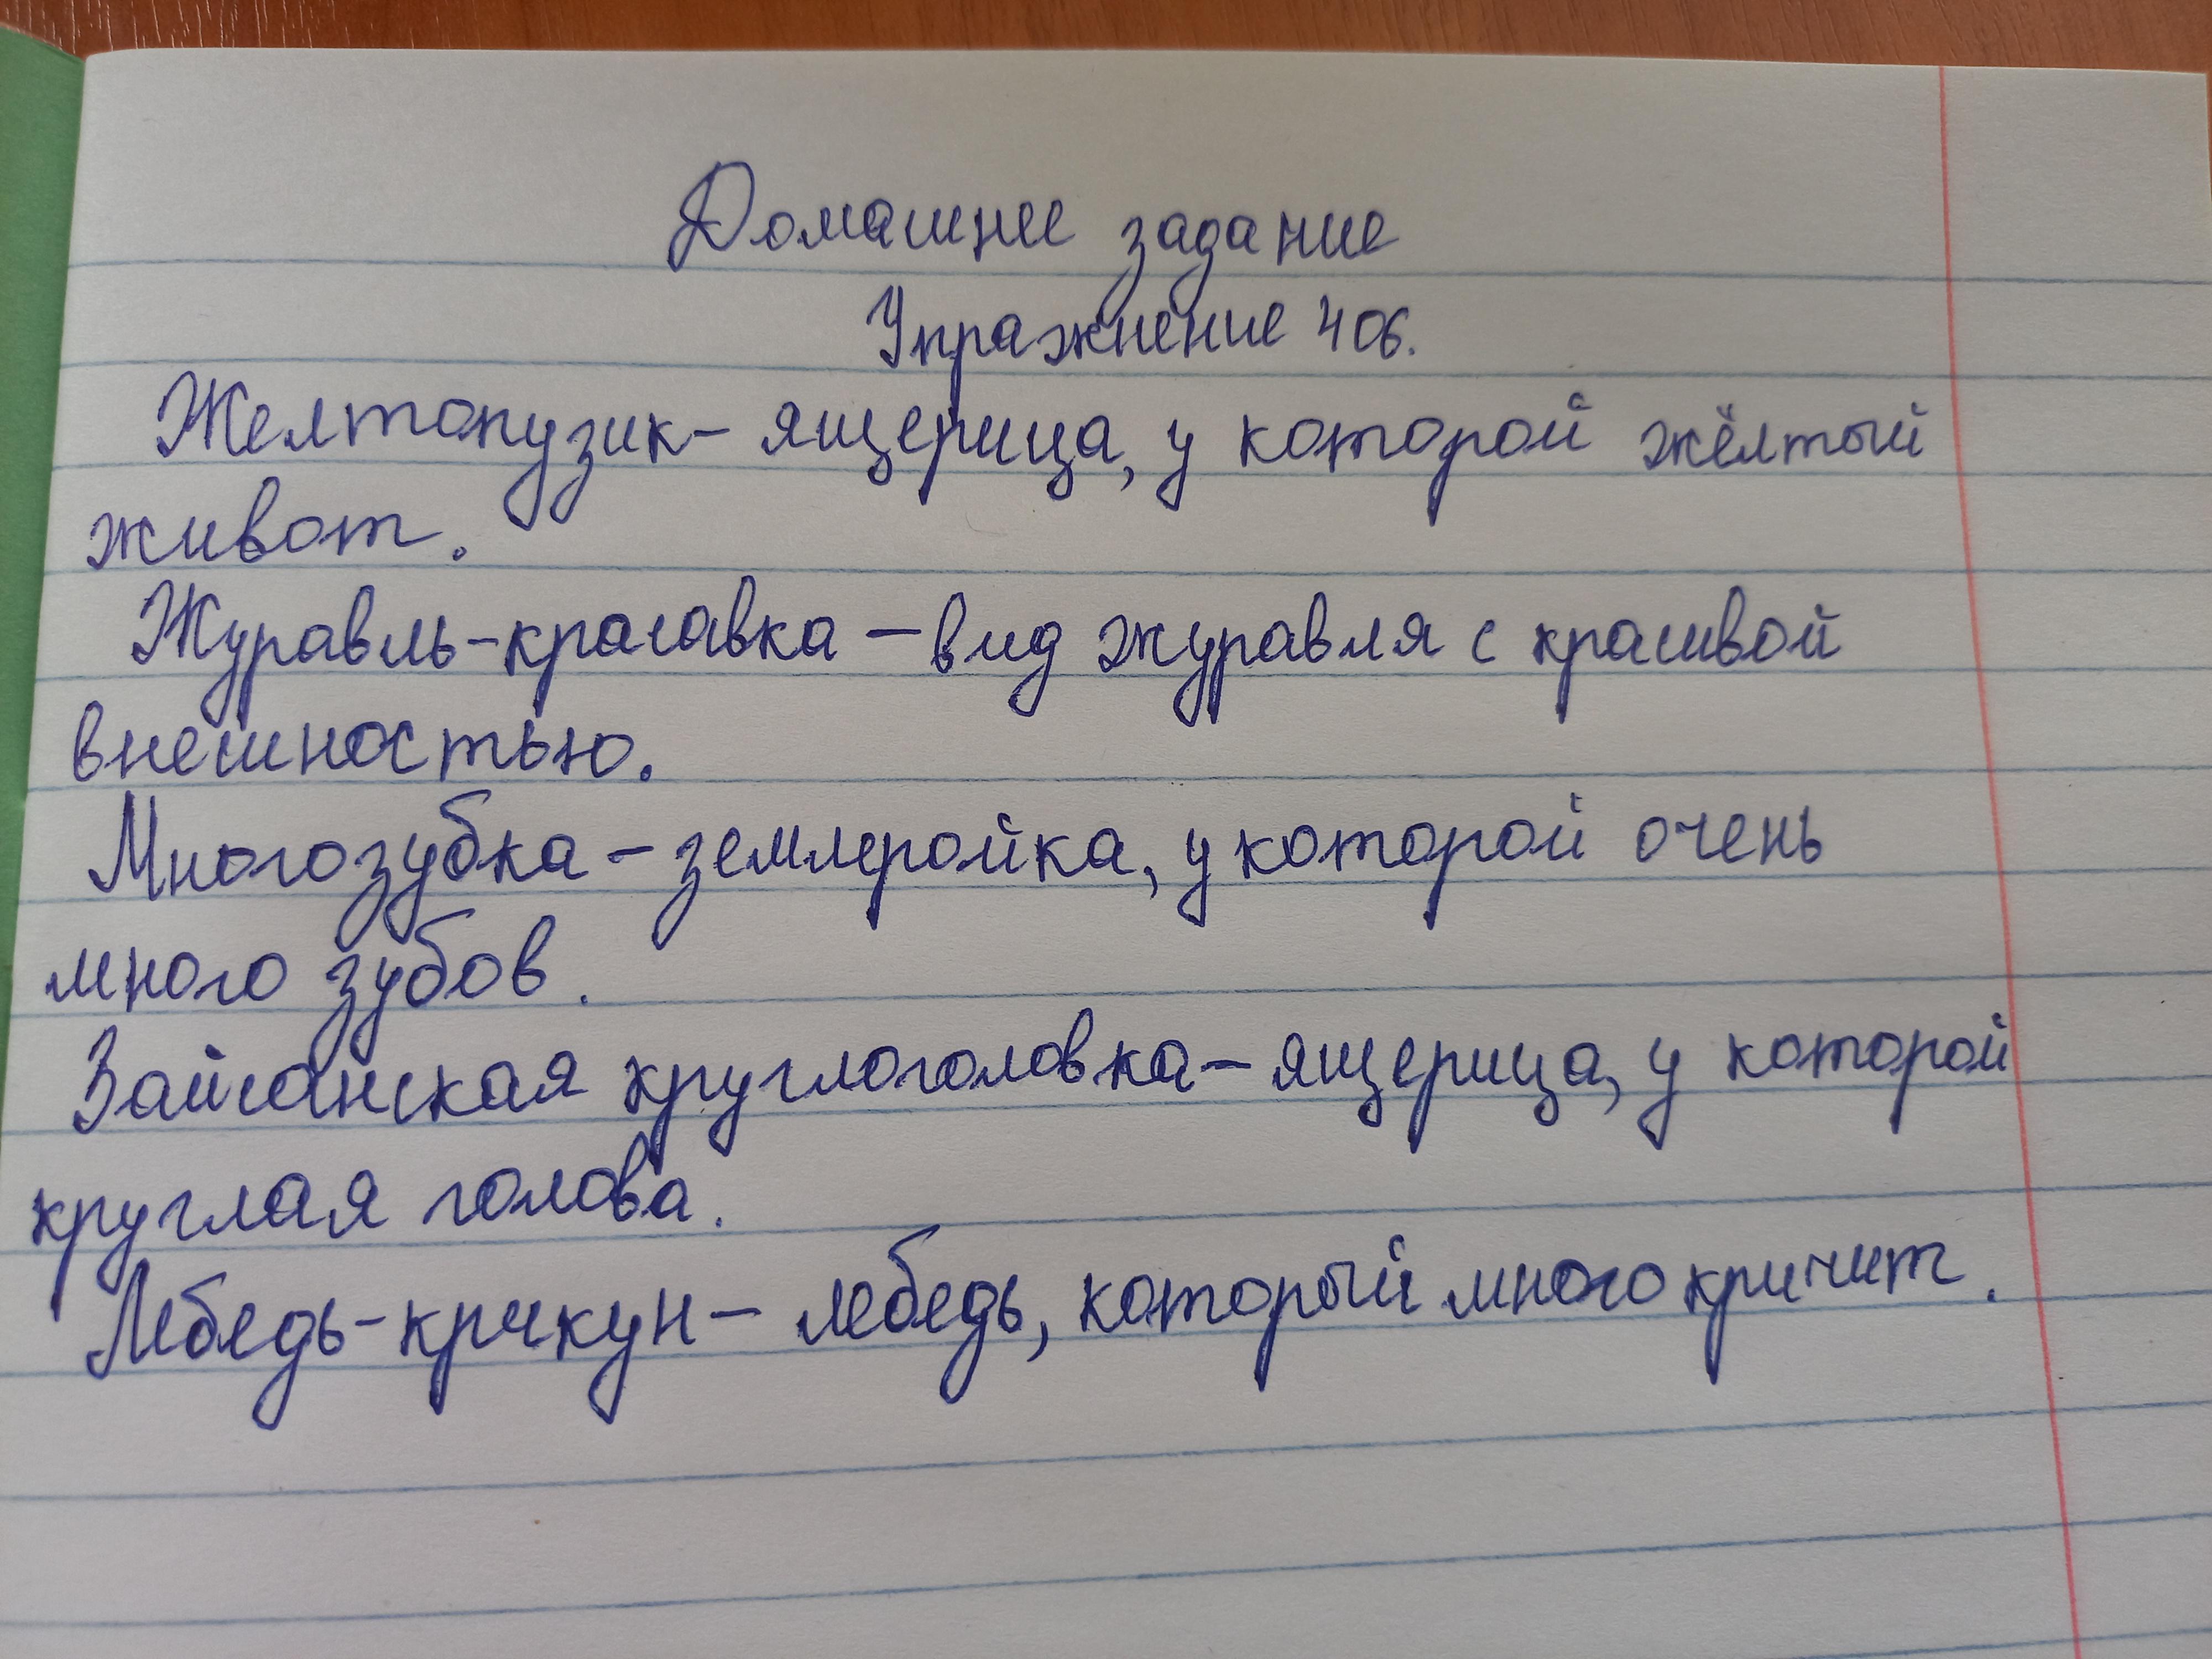 Домашнее задание
Упражнение 406.
Желтопузик- ящерица, у которой жёлтый
живот.
Журавль-красавка - вид журавля с красивой
внешностью.
Многозубка - землеройка, у которой очень
много зубов.
Зайсанская круглоголовка - ящерица, у которой
круглая голова.
Лебедь-крикун - лебедь, который много кричит.